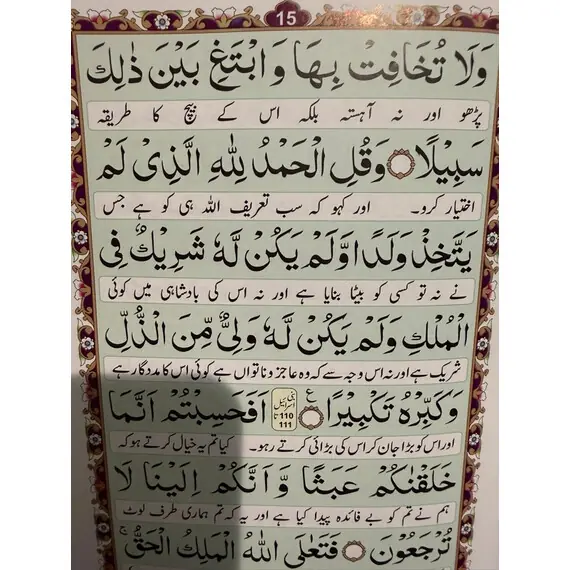 15
وَلَا تُخَافِتْ بِهَا وَابْتَغِ بَيْنَ ذٰلِكَ
پڑھو اور نہ آہستہ بلکہ اس کے بیچ کا طریقہ
سَبِيْلًا ۝ وَقُلِ الْحَمْدُ لِلّٰهِ الَّذِىْ لَمْ
اختیار کرو۔ اور کہو کہ سب تعریف اللہ ہی کو ہے جس
يَتَّخِذْ وَلَدًا وَّلَمْ يَكُنْ لَّهٗ شَرِيْكٌ فِى
نے نہ تو کسی کو بیٹا بنایا ہے اور نہ اس کی بادشاہی میں کوئی
الْمُلْكِ وَلَمْ يَكُنْ لَّهٗ وَلِىٌّ مِّنَ الذُّلِّ
شریک ہے اور نہ اس وجہ سے کہ وہ عاجز و ناتواں ہے کوئی اس کا مددگار ہے
وَكَبِّرْهُ تَكْبِيْرًا ۝ ع بنی اسرائیل 110 تا 111 اَفَحَسِبْتُمْ اَنَّمَا
اور اس کو بڑا جان کر اس کی بڑائی کرتے رہو۔ کیا تم یہ خیال کرتے ہو کہ
خَلَقْنٰكُمْ عَبَثًا وَّاَنَّكُمْ اِلَيْنَا لَا
ہم نے تم کو بے فائدہ پیدا کیا ہے اور یہ کہ تم ہماری طرف لوٹ
تُرْجَعُوْنَ ۝ فَتَعٰلَى اللّٰهُ الْمَلِكُ الْحَقُّ ۚ